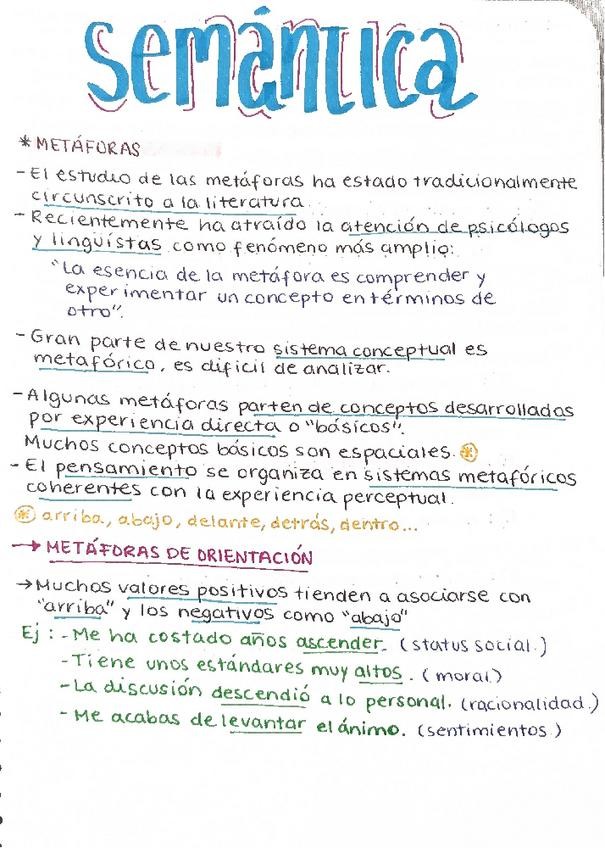 Semántica
* METÁFORAS
- El estudio de las metáforas ha estado tradicionalmente
circunscrito a la literatura.
- Recientemente ha atraído la atención de psicólogos
y linguistas como fenómeno más amplio:
"La esencia de la metáfora es comprender y
experimentar un concepto en términos de
otro".
- Gran parte de nuestro sistema conceptual es
metafórico, es dificil de analizar.
- Algunas metáforas parten de conceptos desarrollados
por experiencia directa o "básicos".
Muchos conceptos básicos son espaciales. *
- El pensamiento se organiza en sistemas metafóricos
coherentes con la experiencia perceptual.
* arriba, abajo, delante, detrás, dentro...
→ METÁFORAS DE ORIENTACIÓN
→ Muchos valores positivos tienden a asociarse con
"arriba" y los negativos como "abajo"
Ej: - Me ha costado años ascender. (status social.)
- Tiene unos estándares muy altos. (moral)
- La discusión descendió a lo personal. (racionalidad.)
- Me acabas de levantar el ánimo. (sentimientos)